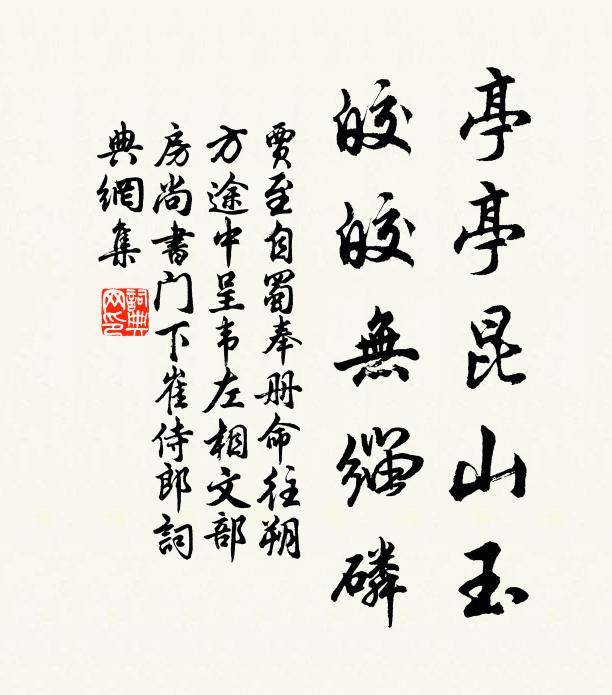 亭亭昆山玉
皎皎無緇磷
賈至自蜀奉册命往朔
方途中呈韦左相文部
房尚書门下崔侍郎詞
典網集
詞典
网印